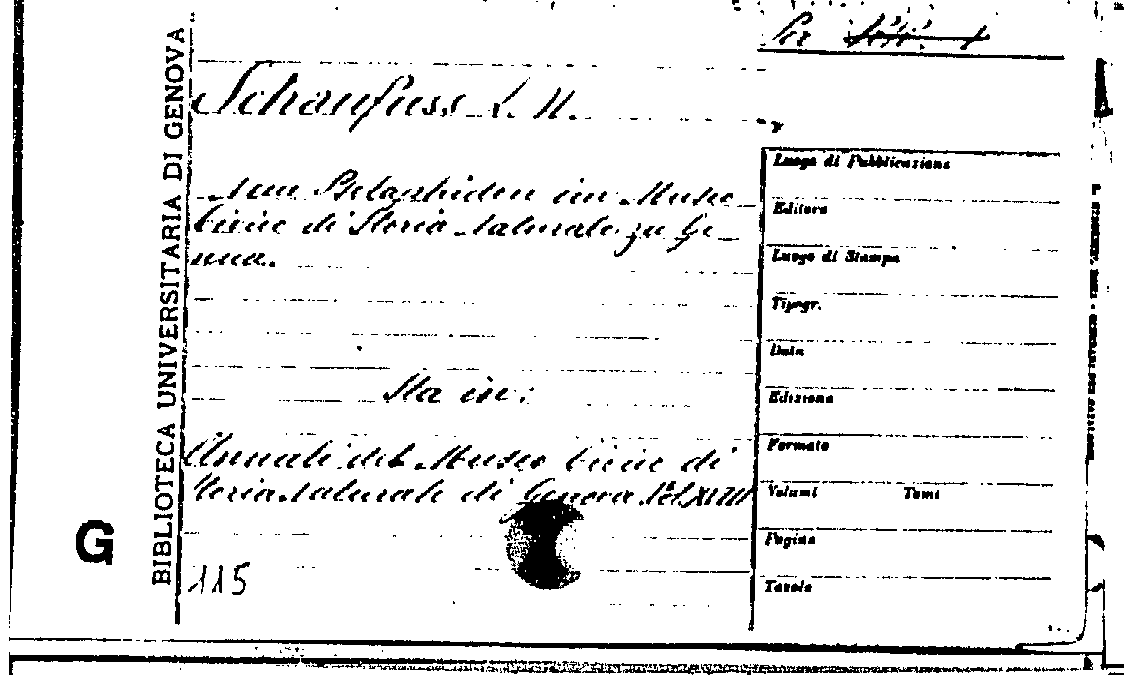 Ser
BIBLIOTECA UNIVERSITARIA DI GENOVA
Schaufuss L. W.
Pselaphiden im Museo
Civic di Storia Naturale zu Ge-
nua.
Sta in:
Annali del Museo Civic di
Storia Naturale di Genova Vol XVIII
115
G
Luogo di Pubblicazione
Editore
Luogo di Stampa
Tipogr.
Data
Edizione
Formato
Volumi Tomi
Pagine
Tavole